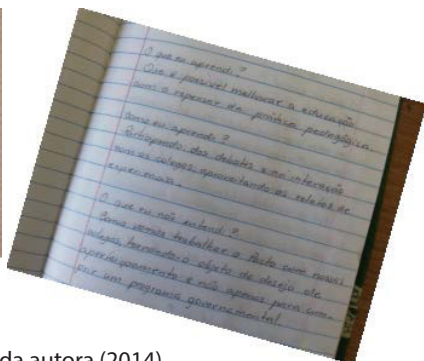 O que eu aprendi?
Que é possível melhorar a educação
com o repensar da prática pedagógica.
Como eu aprendi?
Participando dos debates e na interação
com os colegas, aproveitando os relatos de
experiencia.
O que eu não entendi?
Como vamos trabalhar o Pacto com nossos
colegas, tornando-o objeto de desejo de
aperfeiçoamento e não apenas para cum-
prir um programa governamental.
da autora (2014)